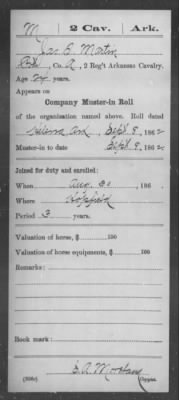 M 2 Cav. Ark.
Jas. E. Martin
Co. A, 2 Reg't Arkansas Cavalry.
Age 24 years.
Appears on
Company Muster-in Roll
of the organization named above. Roll dated
Helena Ark, Sept. 9, 1862
Muster-in to date Sept. 9, 1862
Joined for duty and enrolled:
When Aug. 30, 186 .
Where
Period 3 years.
Valuation of horse, $ 100
Valuation of horse equipments, $ 100
Remarks:
Book mark:
(356c) Copyist.